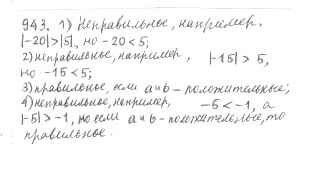 943. 1) Неправильное, например.
|-20|>|5|, но -20 < 5;
2) неправильное, например, |-15| > 5,
но -15 < 5;
3) правильное, если а и в - положительные;
4) неправильное, например, -5 < -1, а
|-5| > -1, но если а и в - положительные, то
правильное.